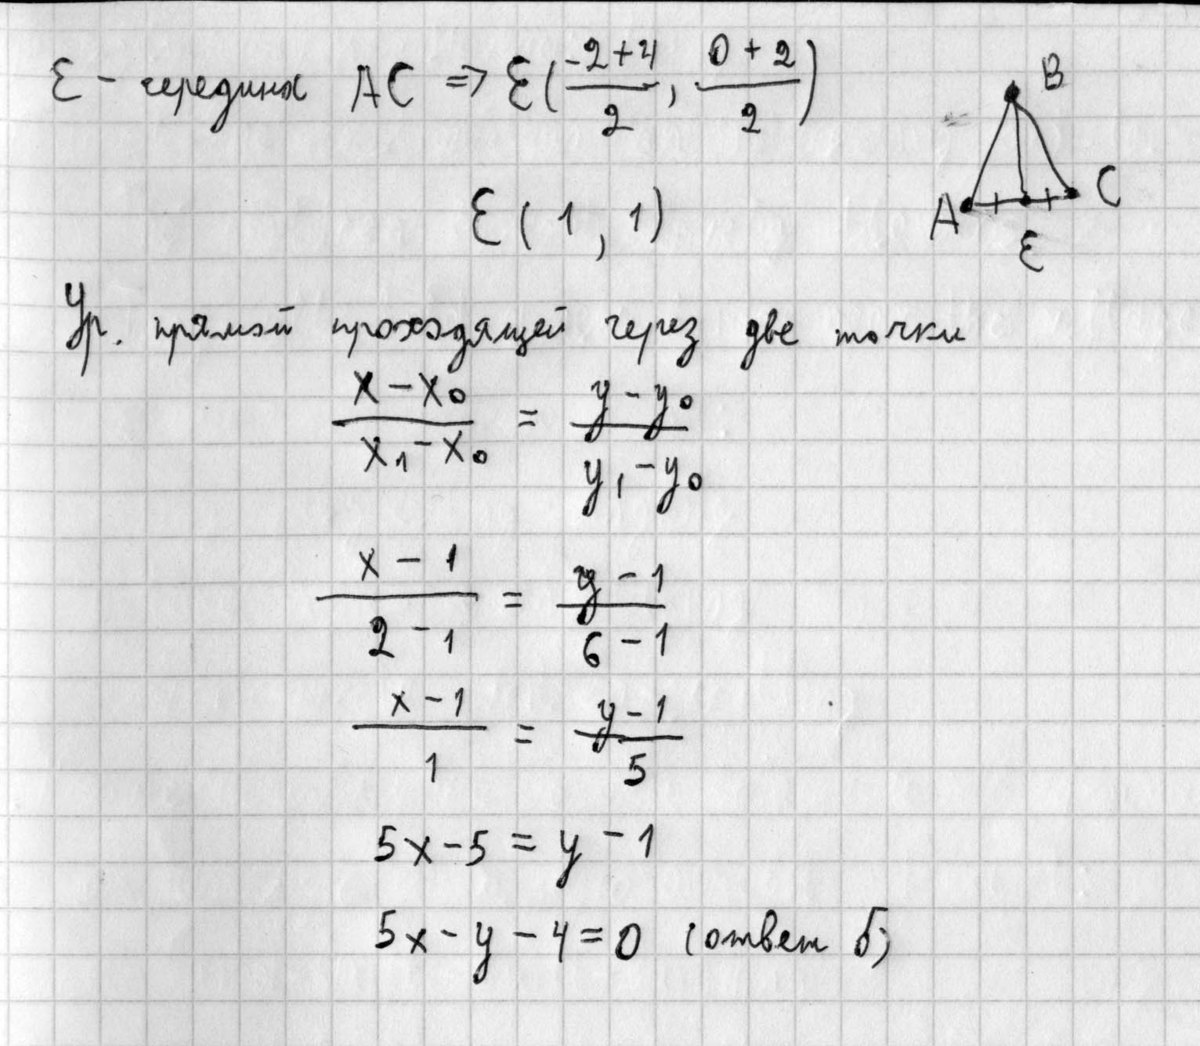 E - середина AC => E(-2+4/2, 0+2/2)
E(1, 1)
B
A
C
E
Ур. прямой проходящей через две точки
x-x₀/x₁-x₀ = y-y₀/y₁-y₀
x-1/2-1 = y-1/6-1
x-1/1 = y-1/5
5x-5=y-1
5x-y-4=0 (ответ б)